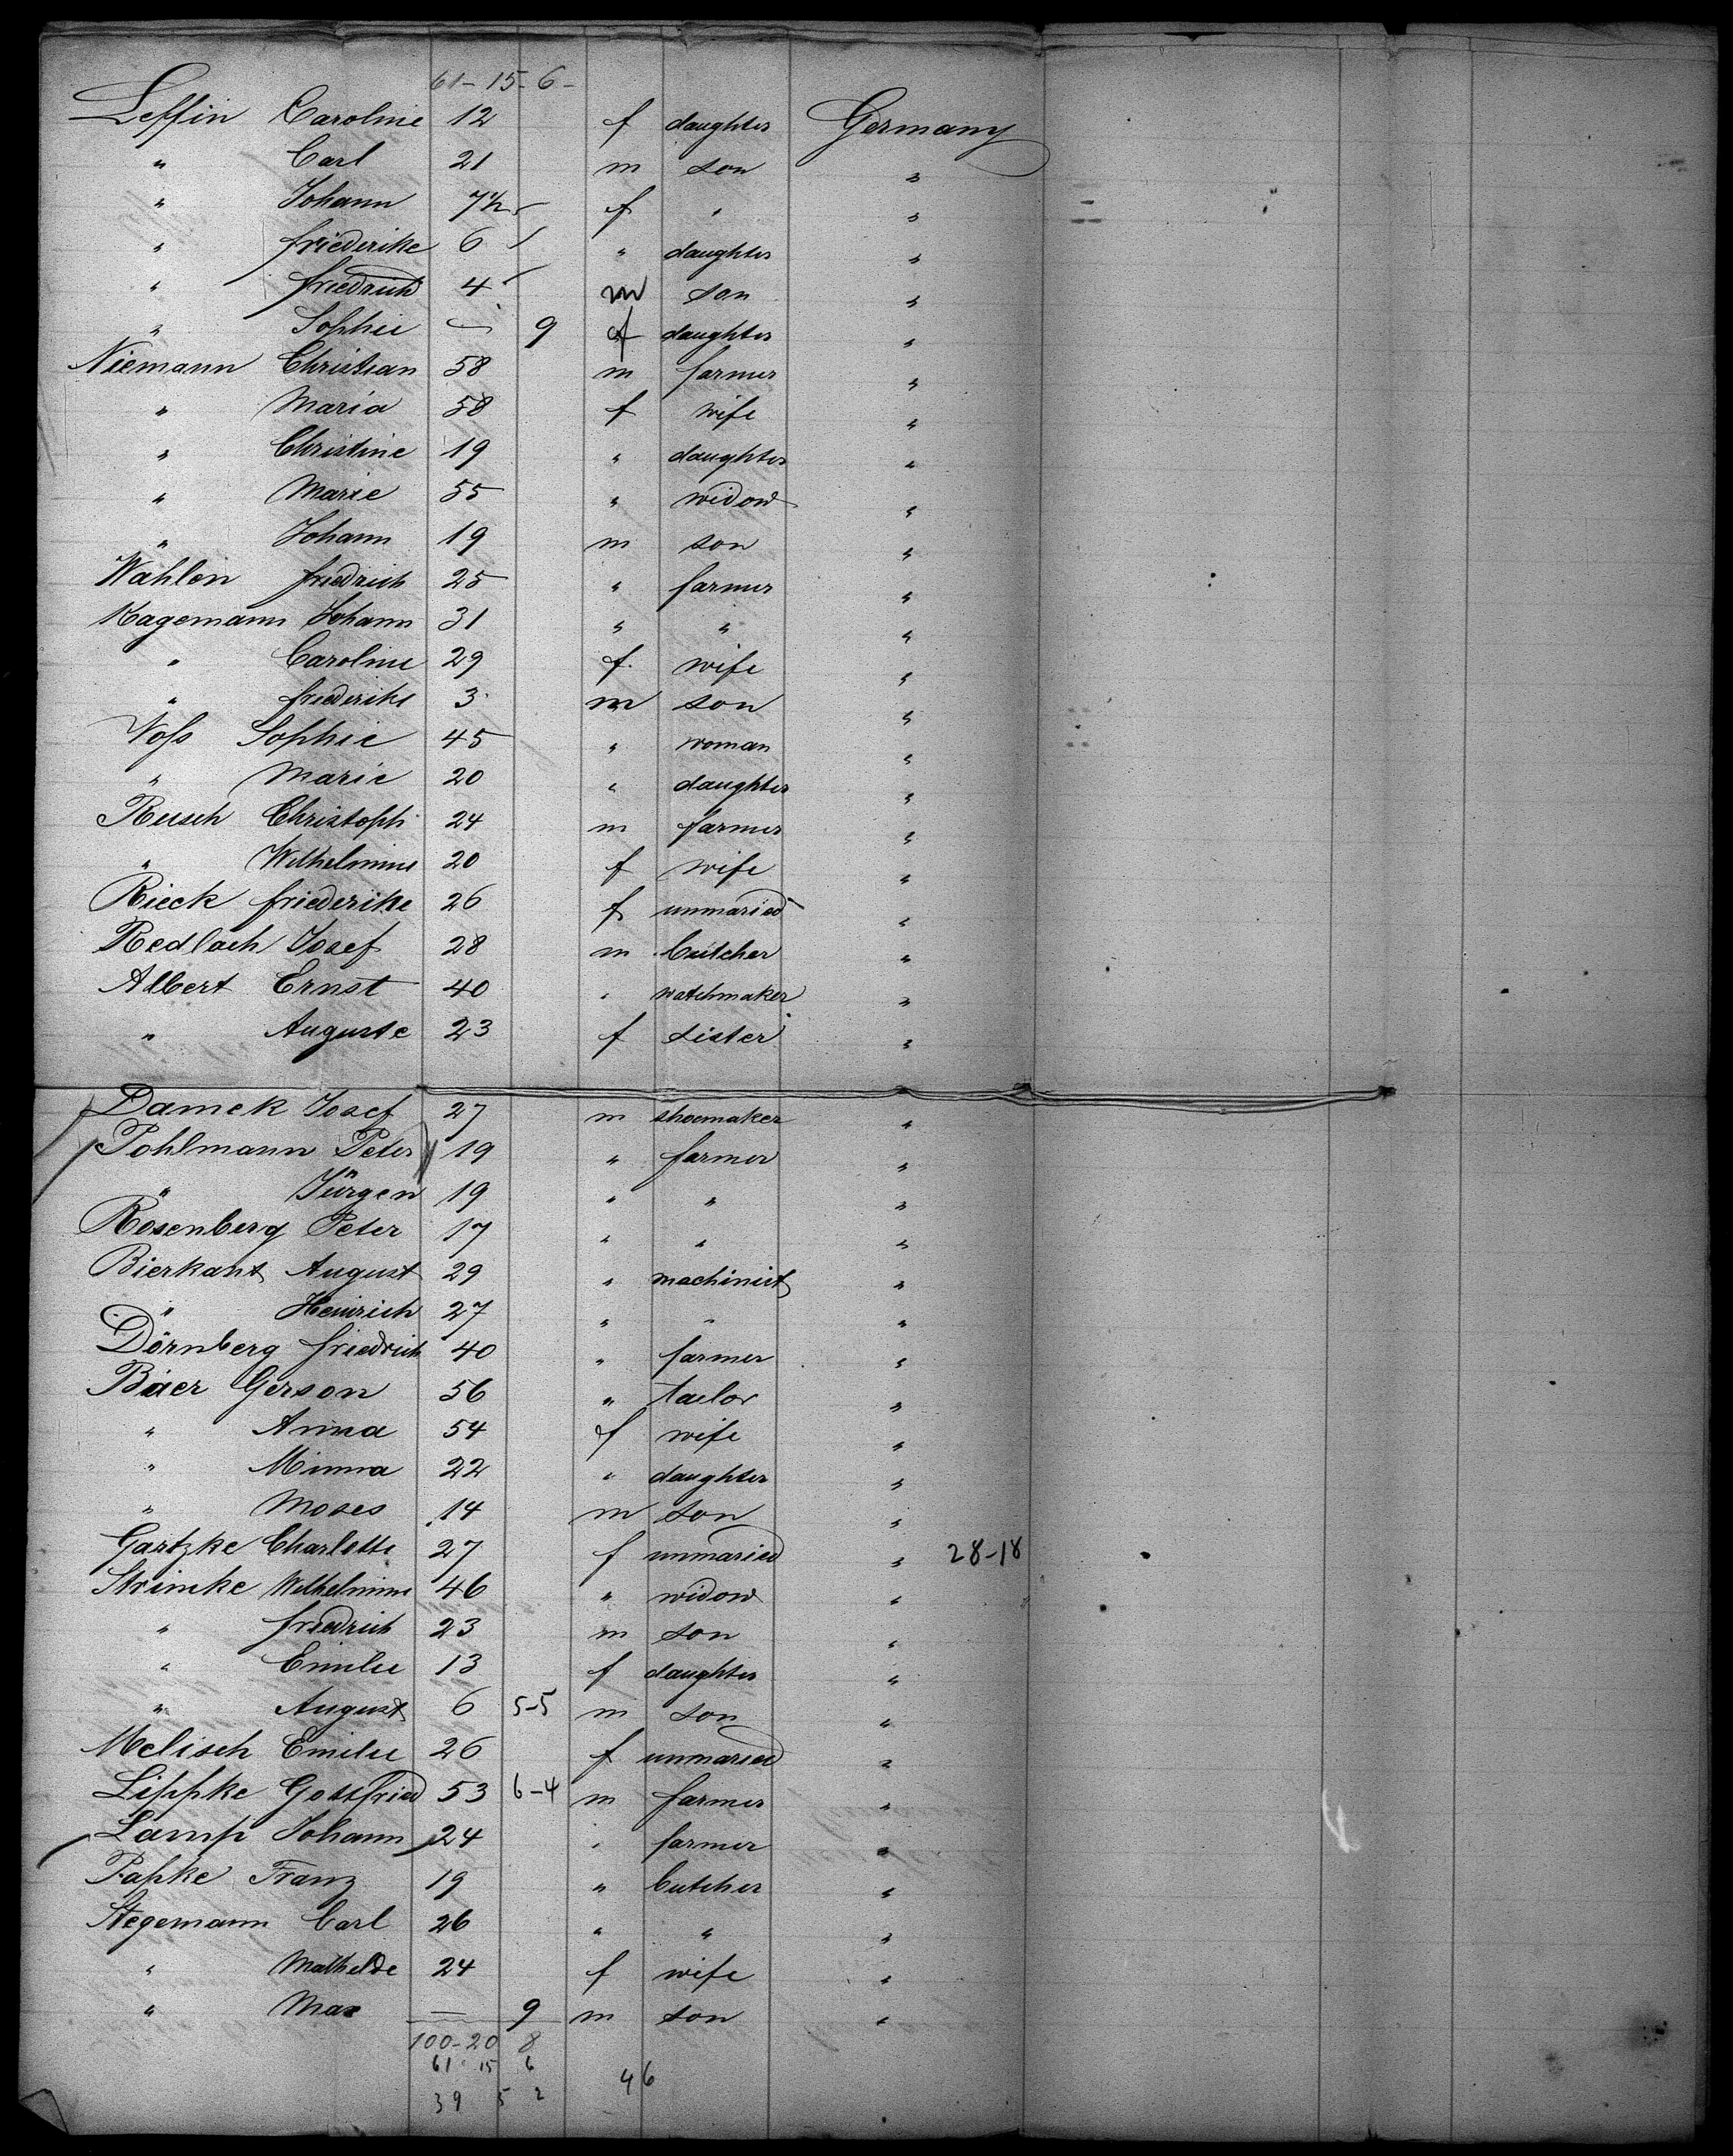 61-15-6-
Leffin Caroline 12 f daughter Germany
" Carl 21 m son "
" Johann 7½ f " "
" Friederike 6 " daughter "
" Friedrich 4 m son "
" Sophie — 9 f daughter "
Niemann Christian 58 m farmer "
" Maria 58 f wife "
" Christine 19 " daughter "
" Marie 55 " widow "
" Johann 19 m son "
Wahlen Friedrich 25 " farmer "
Kagemann Johann 31 " " "
" Caroline 29 f wife "
" Friederike 3 m son "
Voß Sophie 45 " woman "
" Marie 20 " daughter "
Reusch Christoph 24 m farmer "
" Wilhelmine 20 f wife "
Rieck Friederike 26 f unmaried "
Redlach Josef 28 m butcher "
Albert Ernst 40 " watchmaker "
" Auguste 23 f sister "
Damek Josef 27 m shoemaker "
Pohlmann Peter 19 " farmer "
" Jürgen 19 " " "
Rosenberg Peter 17 " " "
Bierkant August 29 " machinist "
" Heinrich 27 " " "
Dörnberg Friedrich 40 " farmer "
Baer Gerson 56 " tailor "
" Anna 54 f wife "
" Minna 22 " daughter "
" Moses 14 m son "
Gartzke Charlotte 27 f unmaried " 28-18
Strimke Wilhelmine 46 " widow "
" Friedrich 23 m son "
" Emilie 13 f daughter "
" August 6 5-5 m son "
Melisch Emilie 26 f unmaried "
Lippke Gottfried 53 6-4 m farmer "
Lamp Johann 24 " farmer "
Papke Franz 19 " butcher "
Stegemann Carl 26 " " "
" Mathelde 24 f wife "
" Max — 9 m son "
100-20 8
61 15 6
46
39 5 2